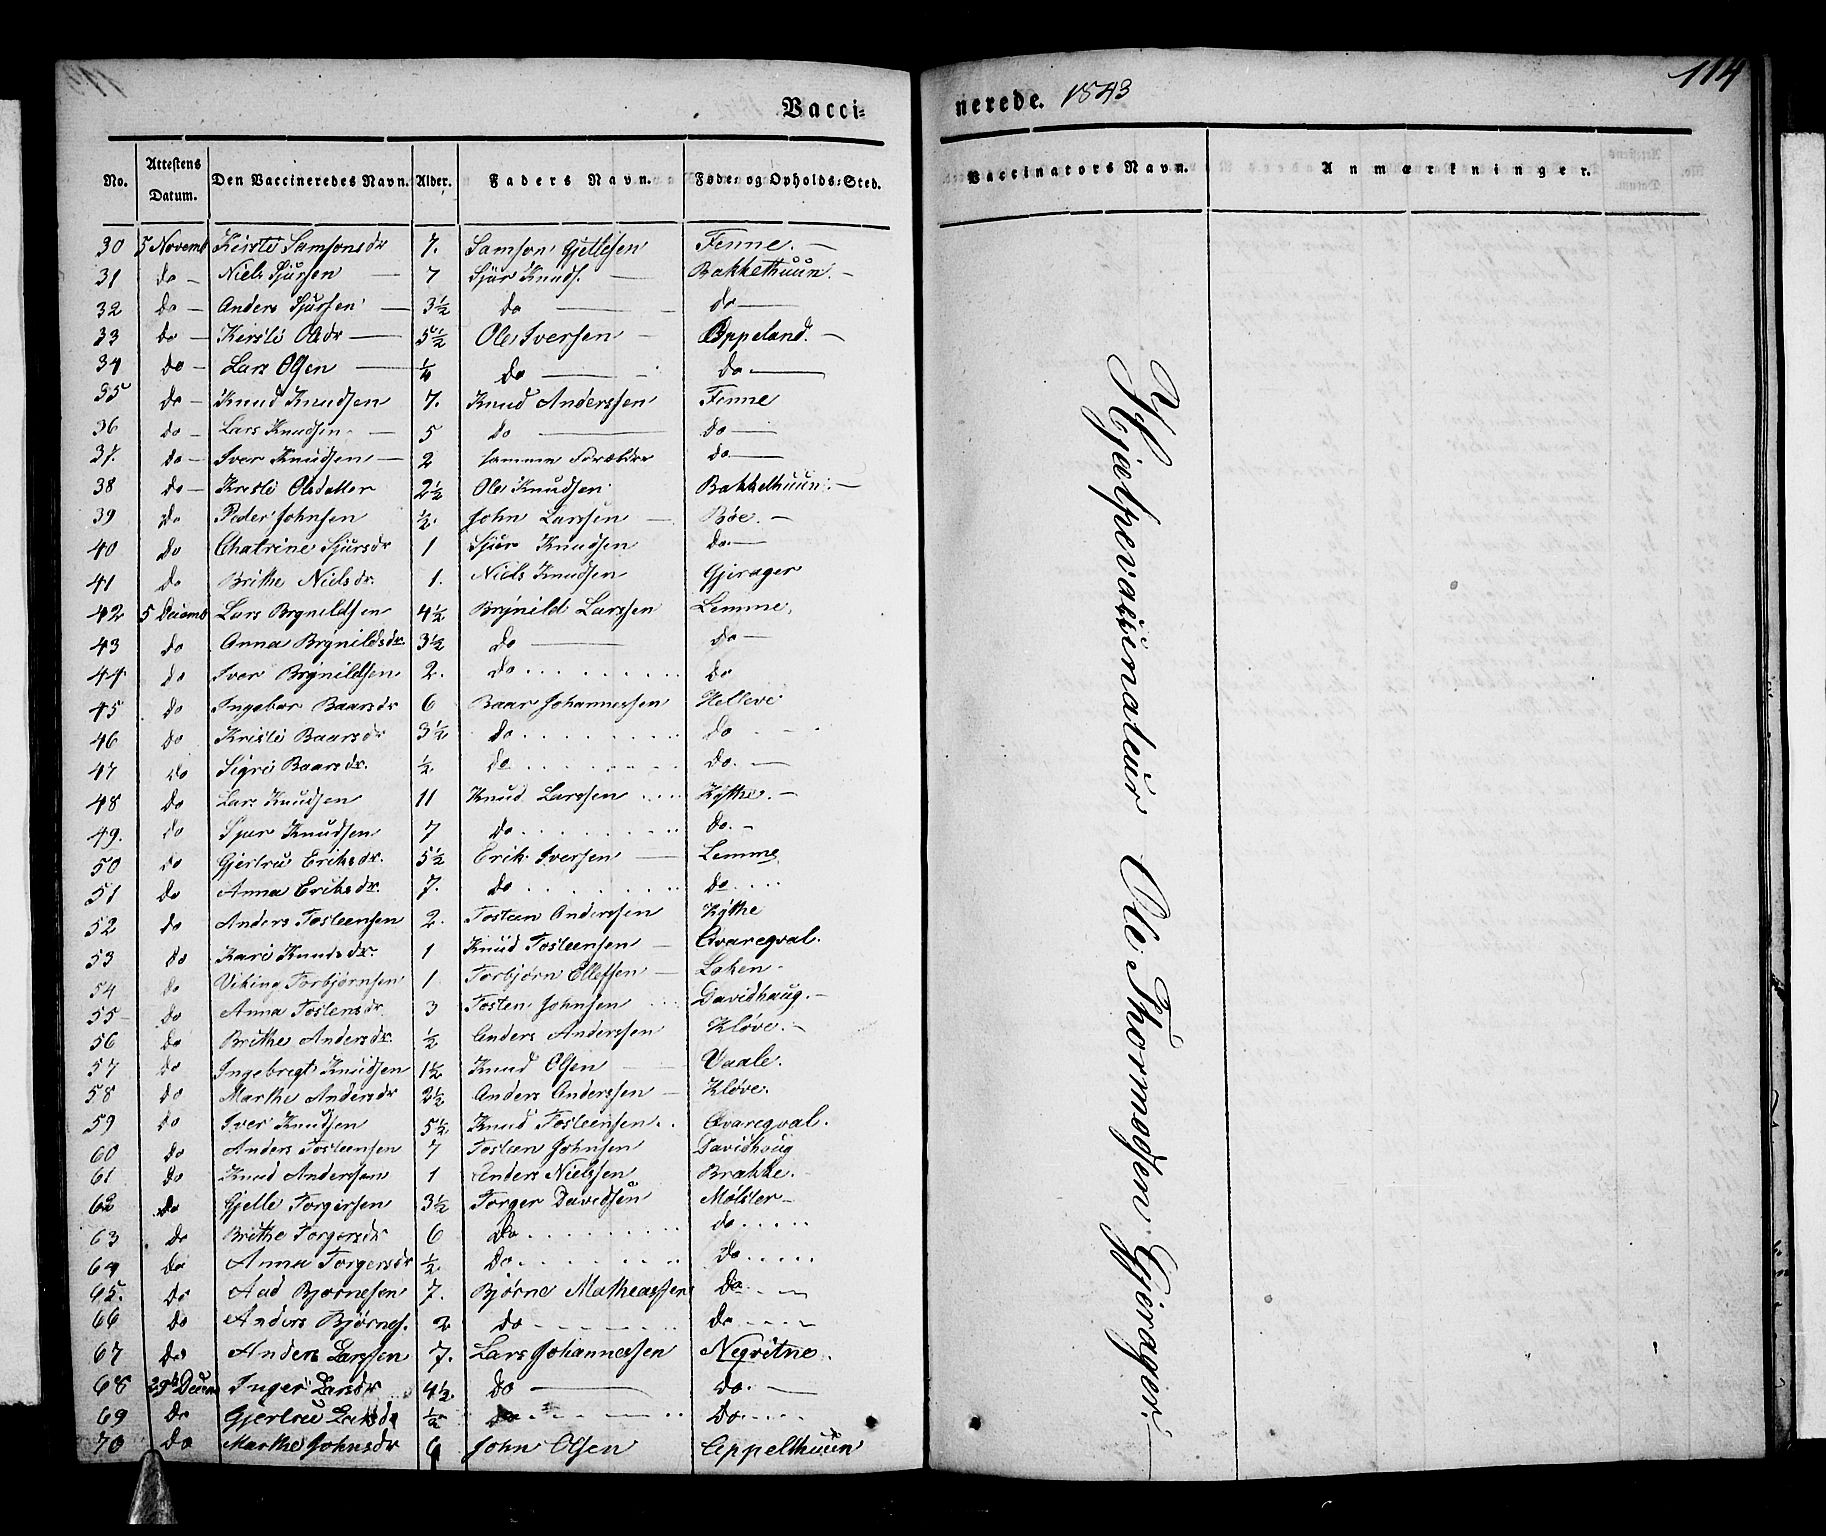 114
Vacci= nerede. 1843
No. Attestens Datum. Den Vaccineredes Navn. Alder. Faders Navn. Føde= og Opholds=Sted. Vaccinators Navn. Anmærkninger.
30 5 Novemb Kirsti Samsonsdr 7. Samson Gjellesen Fenne. —
31 do — Niels Sjursen — 7 Sjur Knuds. — Bakkethuun. —
32 do — Anders Sjursen — 3½ do — do —
33 do — Kirsti Olsdr — 5½ Ole Iversen — Oppeland. —
34 do — Lars Olsen — do — do —
35 do — Knud Knudsen 7. Knud Anderssen Fenne
36 do — Lars Knudsen — 5 do — do —
37. do — Iver Knudsen — 2 samme Forældre do —
38 do — Kristi Olsdatter 2½ Ole Knudsen Bakkethuun. —
39 do Peder Johnsen ½. John Larssen — Bøe. —
40 do Chatrine Sjursdr 1 Sjur Knudsen do —
41 do Brithe Nielsdr. 1. Niels Knudsen Gjerager
42 5 Decemb Lars Brynildsen 4½ Brynild Larssen Lemme.
43 do Anna Brynildsdr. 3½ do — do —
44 do Iver Brynildsen 2. do do
45 do Ingebor Baarsdr 6 Baar Johannessen Helleve
46 do Kristi Baarsdr 3½ do do
47 do Sigri Baarsdr. ½. do do. —
48 do Lars Knudsen 11 Knud Larssen Kythe. —
49. do Sjur Knudsen 7 do do. —
50 do Gjertru Eriksdr. 5½ Erik Iversen — Lemme
51 do Anna Eriksdr. 7. do do
52 do Anders Tosteensen 2. Tosteen Anderssen Kythe
53 do Kari Knudsdr. 1 Knud Tosteensen — Qvaregval.
54 do Viking Torbjørnsen 1 Torbjørn Ellefsen — Lohen
55 do Anna Tostensdr. 3 Tosten Johnsen Davidhaug. —
56 do Brithe Andersdr. ½ Anders Anderssen Kløve. —
57 do Ingebregt Knudsen 1½ Knud Olsen Vaale.
58 do Marthe Andersdr 2½ Anders Anderssen — Kløve.
59 do Iver Knudsen 5½ Knud Tosteensen Qvaregval.
60 do Anders Tosteensen 7 Tosteen Johnsen Davidhaug
61 do Knud Anderssen 1 Anders Nielssen Brakke.
62 do Gjelle Torgersen 3½ Torger Davidsen Mølster —
63 do Brithe Torgersdr 6 do do
64 do Anna Torgersdr ½. do do
65. do Aad Bjørnesen 7. Bjørne Matheassen do
66 do Anders Bjørnes. 2 do do
67 do Anders Larssen 7. Lars Johannessen Negvitne.
68 29de Decem Inger Larsdr 4½. do — do. —
69 do Gjertru Larsdr ½ do do
70 do Marthe Johnsdr 6 John Olsen Oppelthuun
Hjælpevaccinateur Ole Thormodsen Gjerager. —